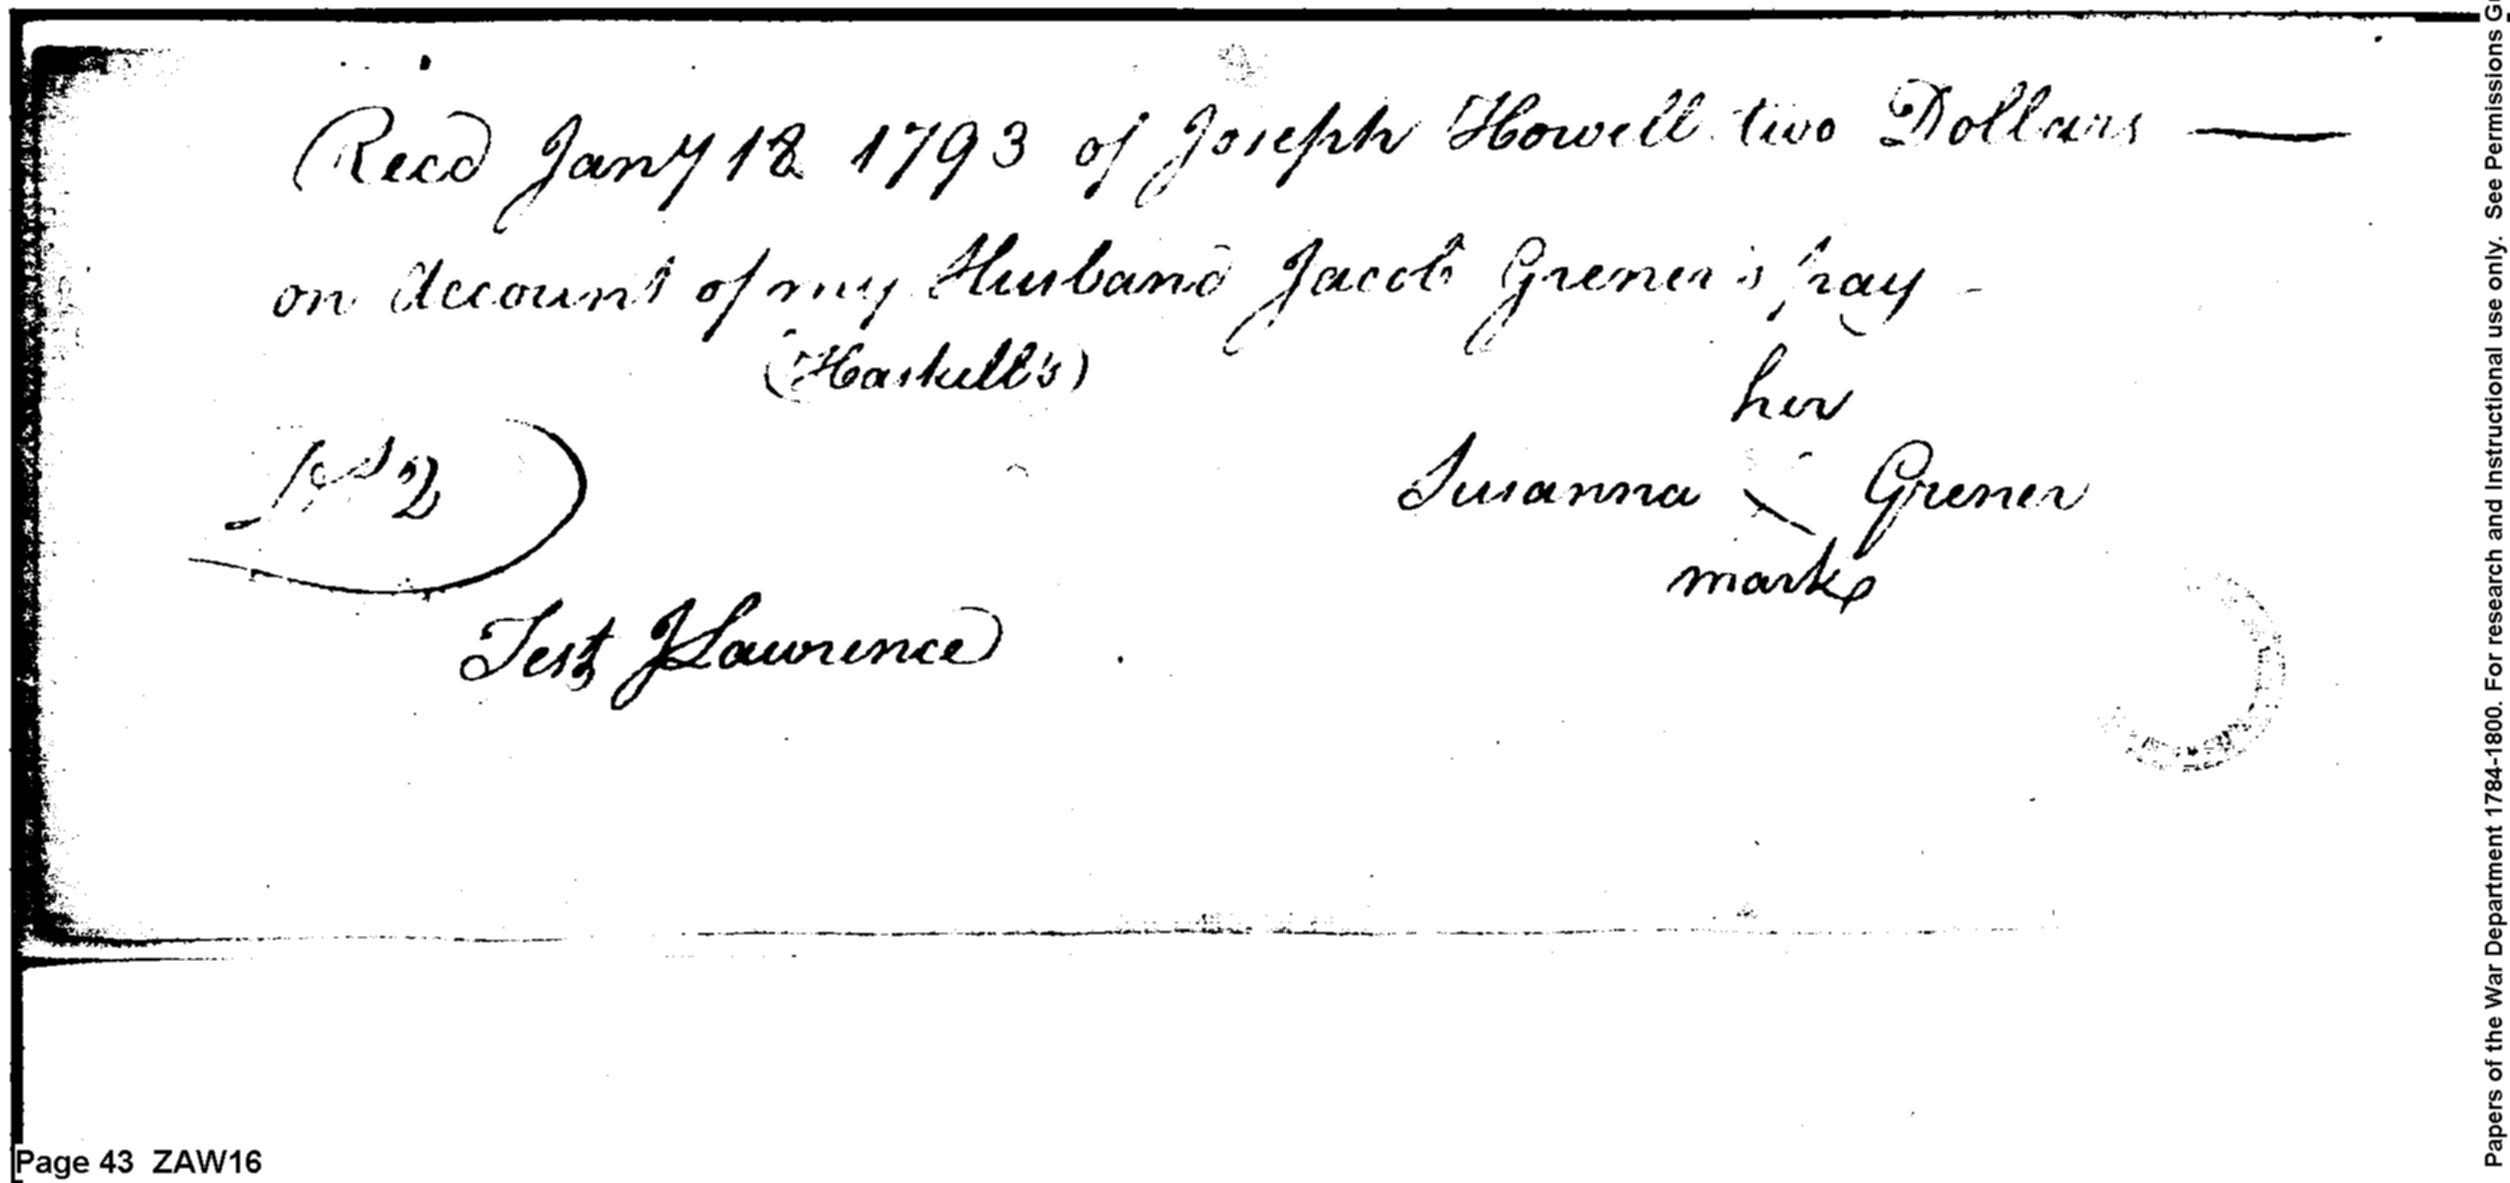 Recd Jany 18 1793 of Joseph Howell two Dollars —
on Account of my Husband Jacob Grener's pay -
(Haskell's)
her
Susanna Grener
mark
Test JLawrence
Page 43 ZAW16
Papers of the War Department 1784-1800. For research and Instructional use only. See Permissions